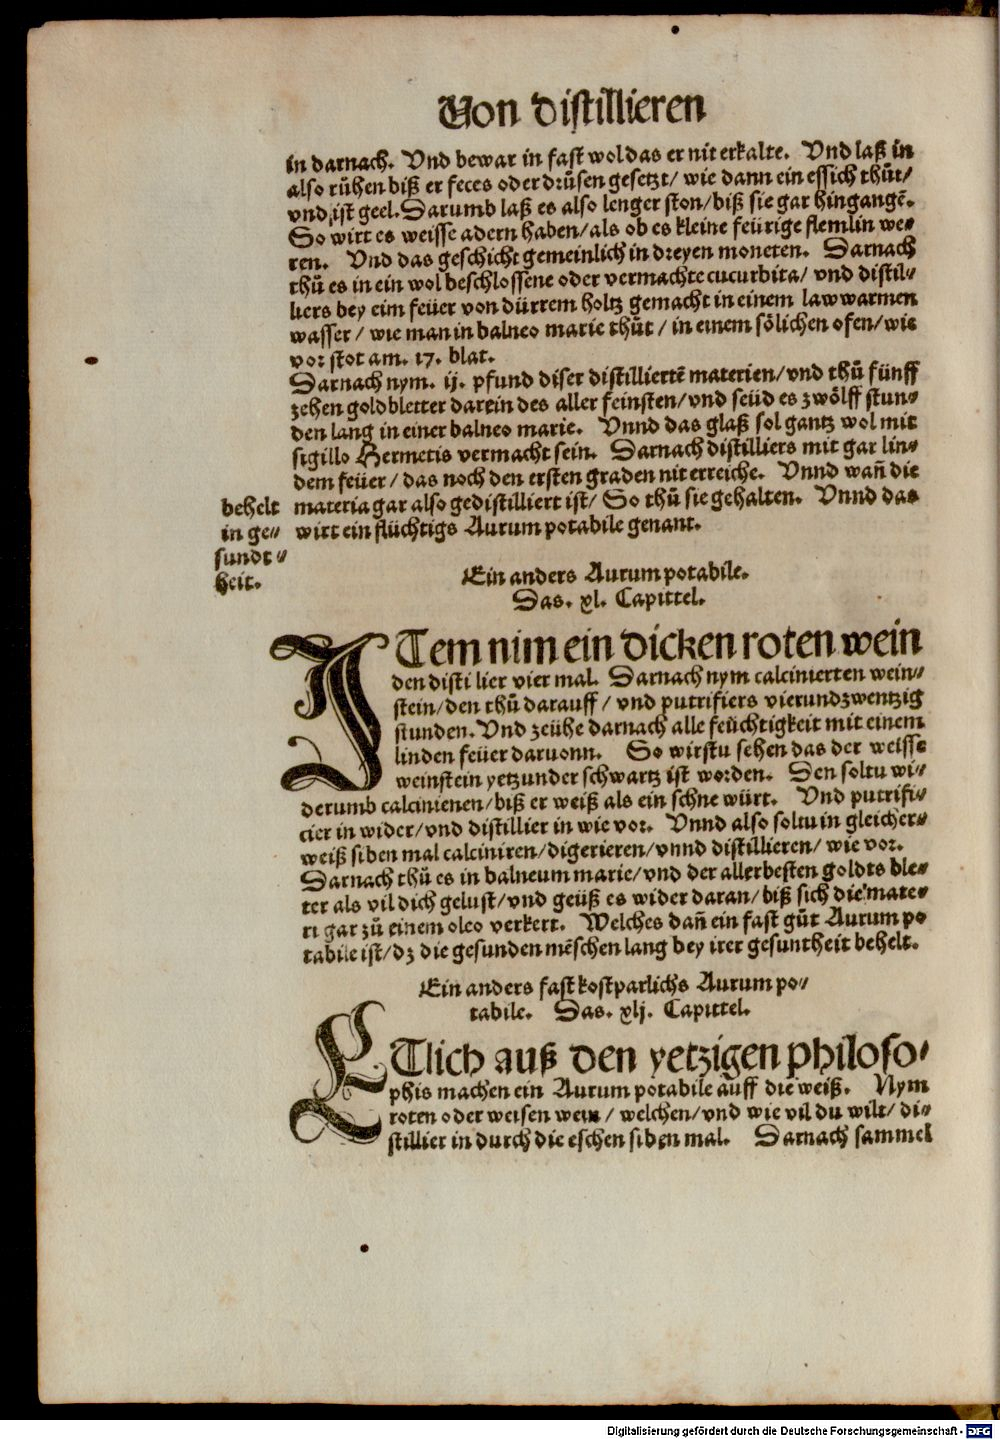 Von distillieren
in darnach. Vnd bewar in fast wol das er nit erkalte. Vnd laß in
also růhen biß er feces oder drůsen gesetzt/ wie dann ein essich thůt/
vnd ist geel. Darumb laß es also lenger ston/ biß sie gar hingangē.
So wirt es weisse adern haben/ als ob es kleine feürige flemlin we⸗
ren. Vnd das geschicht gemeinlich in dreyen moneten. Darnach
thů es in ein wol beschlossene oder vermachte cucurbita/ vnd distil⸗
liers bey eim feüer von dürrem holtz gemacht in einem law warmen
wasser/ wie man in balneo marie thůt/ in einem sölichen ofen/ wie
vor stot am. 17. blat.
Darnach nym. ij. pfund diser distilliertē materien/ vnd thů fünff
zehen goldbletter darein des aller feinsten/ vnd seüd es zwölff stun⸗
den lang in einer balneo marie. Vnnd das glaß sol gantz wol mit
sigillo Hermetis vermacht sein. Darnach distilliers mit gar lin⸗
dem feüer/ das noch den ersten graden nit erreiche. Vnnd wañ die
materia gar also gedistilliert ist/ So thů sie gehalten. Vnnd das
wirt ein flüchtigs Aurum potabile genant.
behelt
in ge⸗
sundt⸗
heit.
Ein anders Aurum potabile.
Das. xl. Capittel.
ITem nim ein dicken roten wein
den disti lier vier mal. Darnach nym calcinierten wein⸗
stein/ den thů darauff/ vnd putrifiers vierundzwentzig
stunden. Vnd zeühe darnach alle feüchtigkeit mit einem
linden feüer daruonn. So wirstu sehen das der weisse
weinstein yetzunder schwartz ist worden. Den soltu wi⸗
derumb calcinienen/ biß er weiß als ein schne würt. Vnd putrifi⸗
cier in wider/ vnd distillier in wie vor. Vnnd also soltu in gleicher⸗
weiß siben mal calciniren/ digerieren/ vnnd distillieren/ wie vor.
Darnach thů es in balneum marie/ vnd der allerbesten goldts ble⸗
ter als vil dich gelust/ vnd geüß es wider daran/ biß sich die mate⸗
ri gar zů einem oleo verkert. Welches dañ ein fast gůt Aurum po
tabile ist/ dz die gesunden mēschen lang bey irer gesuntheit behelt.
Ein anders fast kostparlichs Aurum po⸗
tabile. Das. xlj. Capittel.
ETlich auß den yetzigen philoso⸗
phis machen ein Aurum potabile auff die weiß. Nym
roten oder weisen wein/ welchen/ vnd wie vil du wilt/ di⸗
stillier in durch die eschen siben mal. Darnach sammel
Digitalisierung gefördert durch die Deutsche Forschungsgemeinschaft - DFG